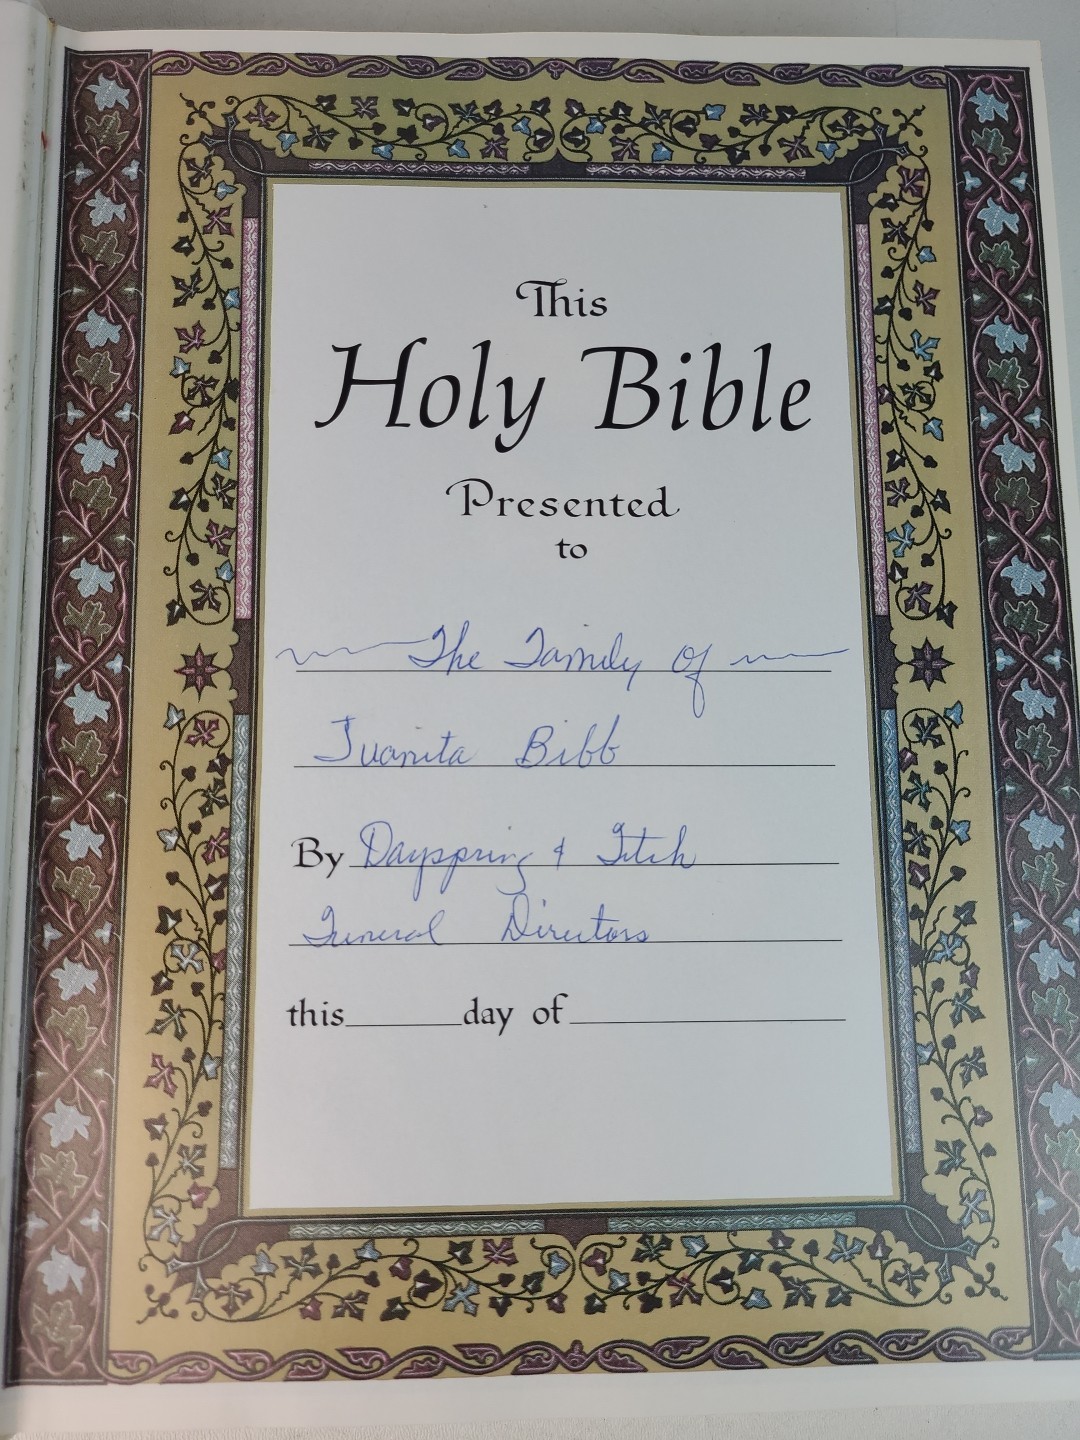 This
Holy Bible
Presented
to
The Family Of
Juanita Bibb
By Dayspring & Fitch
Funeral Directors
this day of